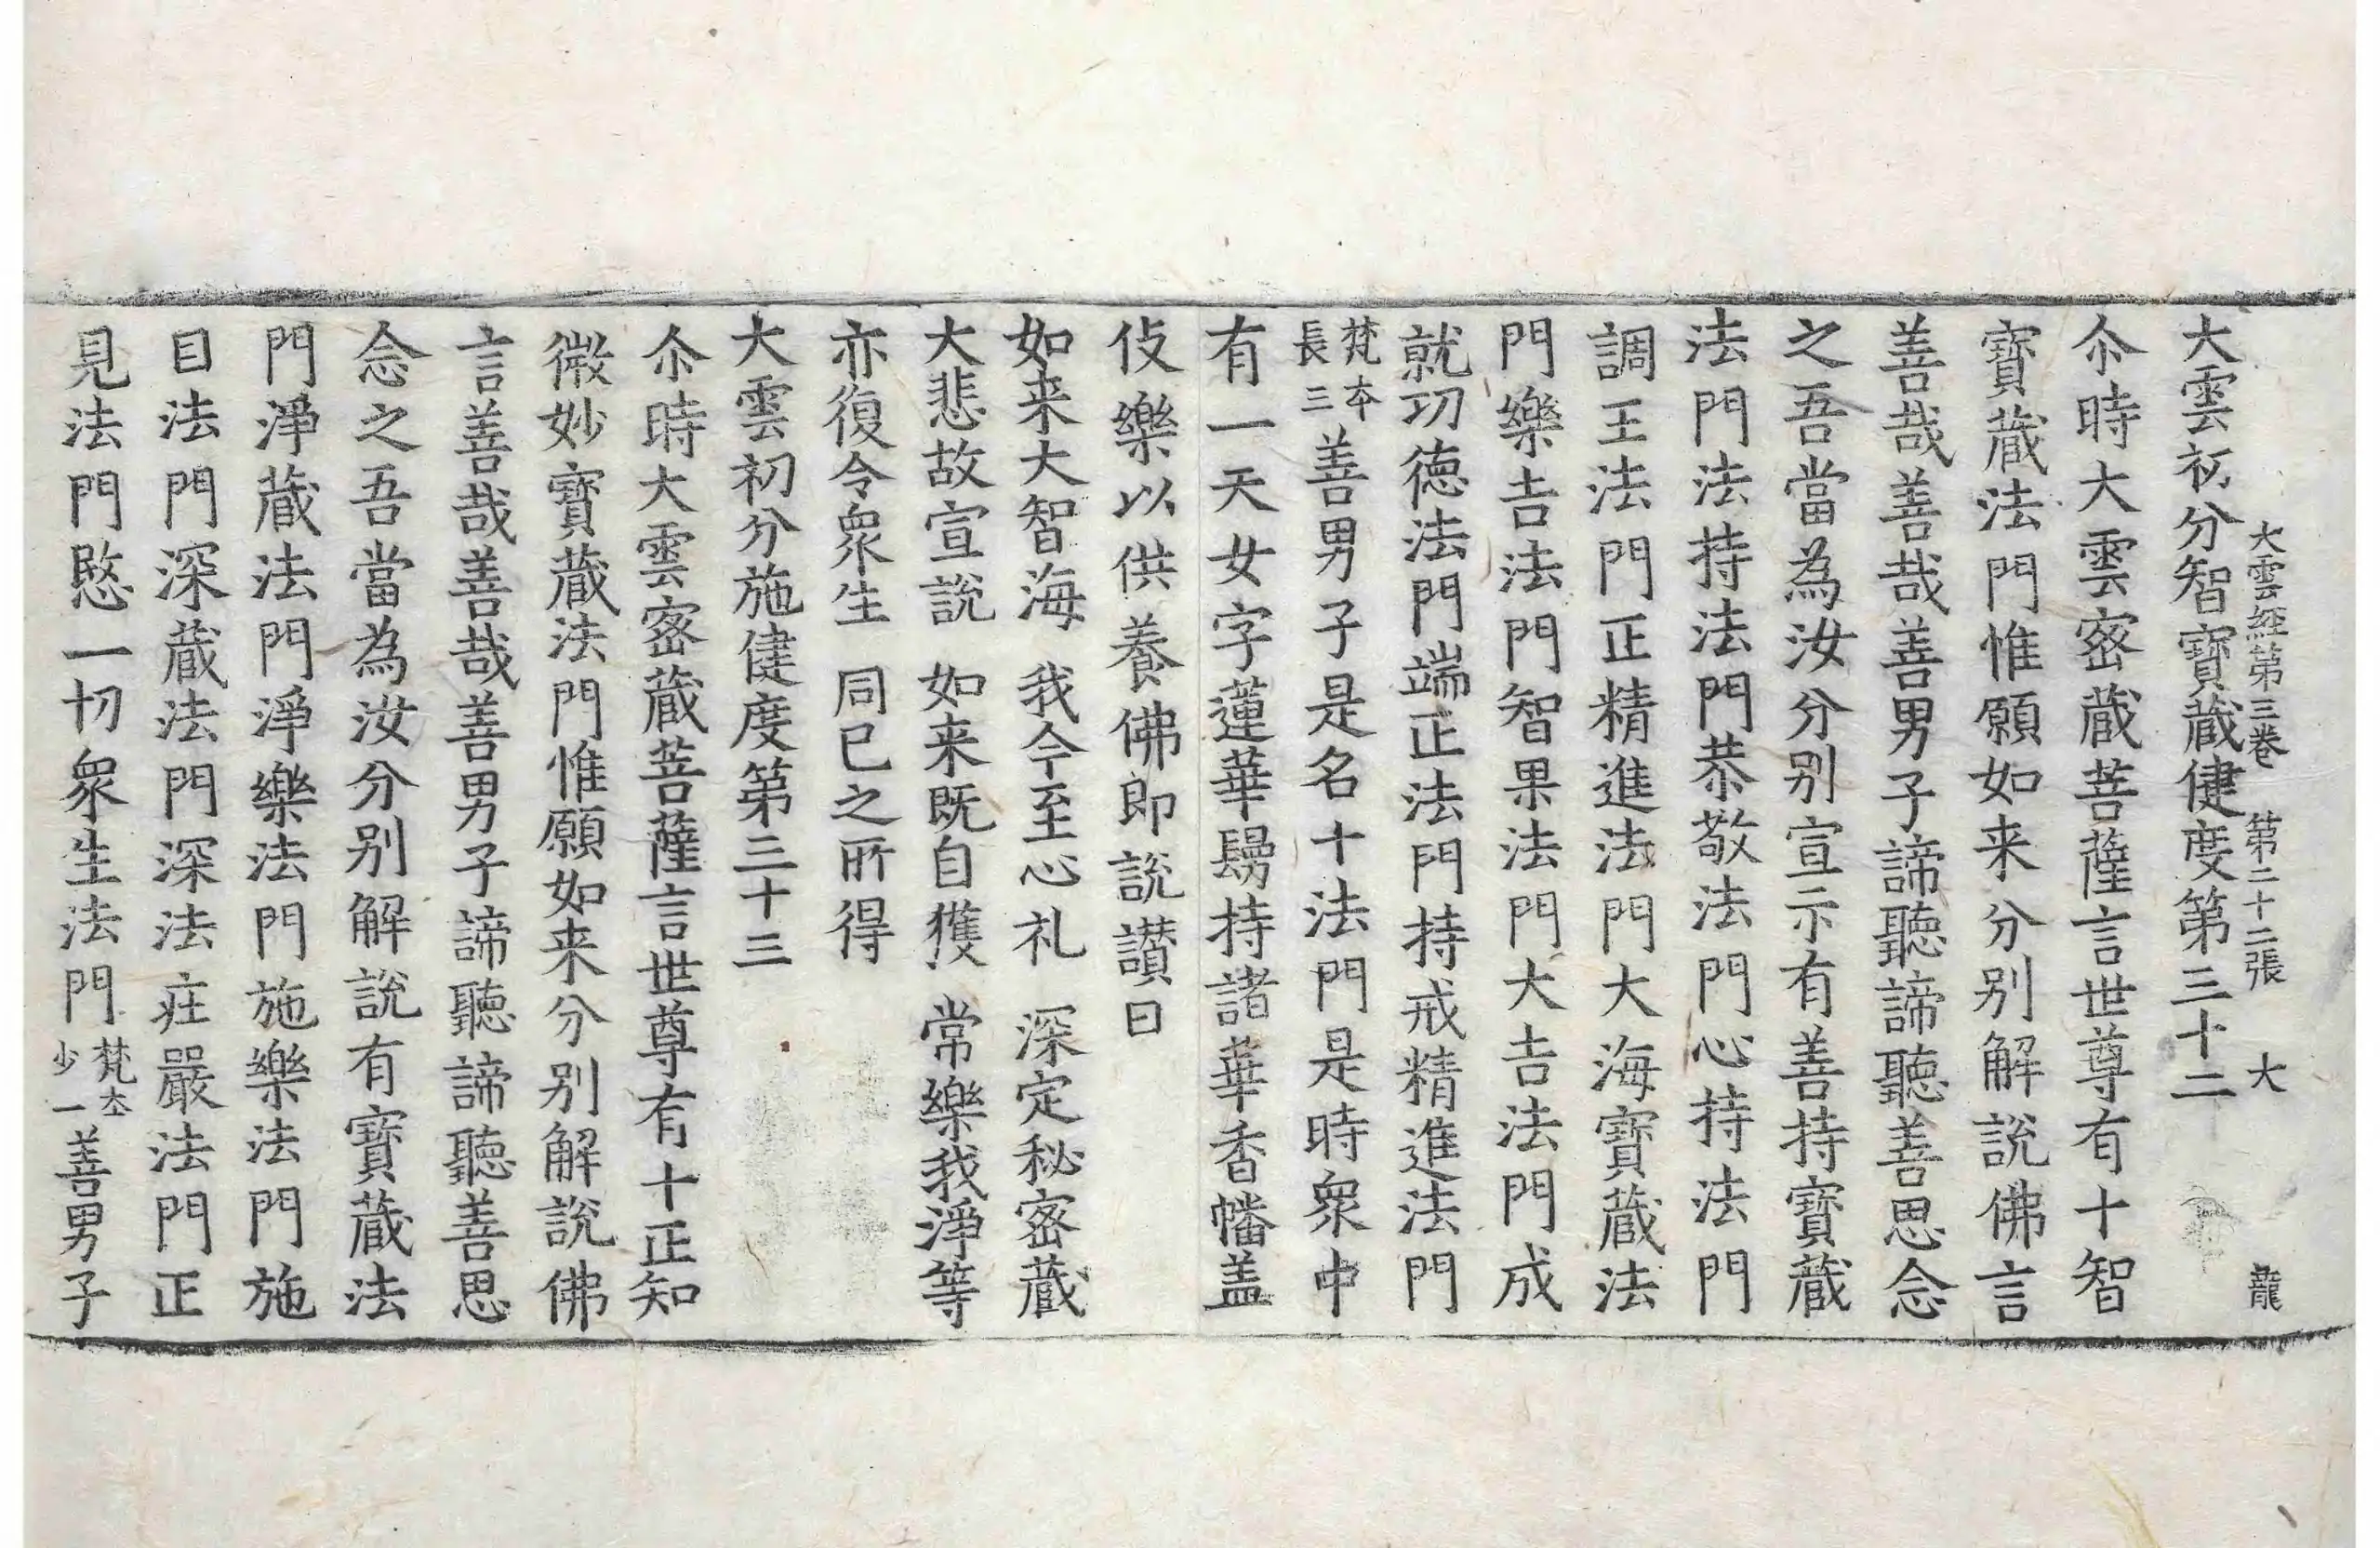 大雲經第三卷　第二十二張　大　龍
大雲初分智寶藏健度第三十二
尒時大雲密藏菩薩言世尊有十智
寶藏法門惟願如来分別解說佛言
善哉善哉善男子諦聽諦聽善思念
之吾當為汝分別宣示有善持寶藏
法門法持法門恭敬法門心持法門
調王法門正精進法門大海寶藏法
門樂吉法門智果法門大吉法門成
就功德法門端正法門持戒精進法門
梵本長三善男子是名十法門是時衆中
有一天女字蓮華鬘持諸華香幡盖
伎樂以供養佛即說讃曰
如来大智海　我今至心礼　深定秘密藏
大悲故宣說　如来既自獲　常樂我淨等
亦復令衆生　同已之所得
大雲初分施健度第三十三
尒時大雲密藏菩薩言世尊有十正知
微妙寶藏法門惟願如来分別解說佛
言善哉善哉善男子諦聽諦聽善思
念之吾當為汝分別解說有寶藏法
門淨藏法門淨樂法門施樂法門施
目法門深藏法門深法庄嚴法門正
見法門愍一切衆生法門梵本少一善男子